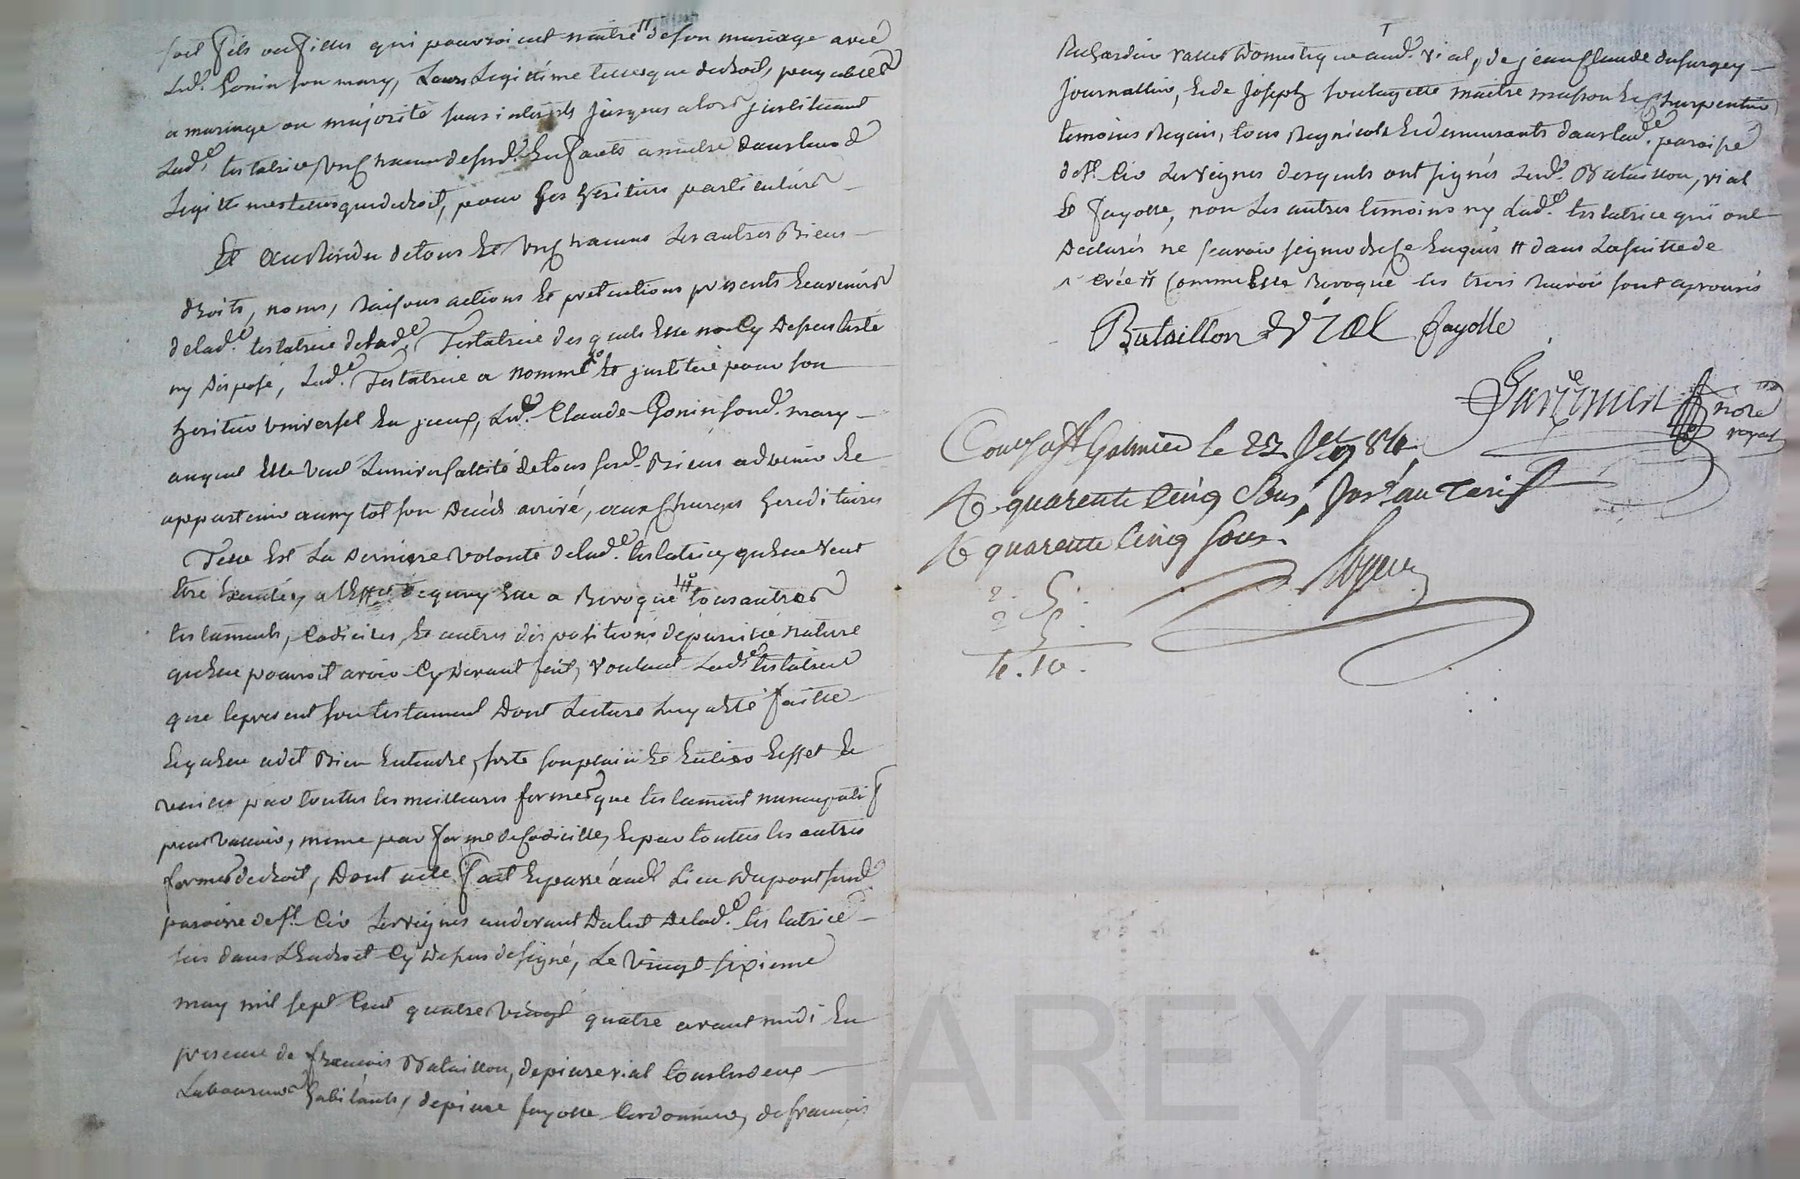 soit fils ou filles qui pourroient naitre # de son mariage avec
Led.t Gonin son mary, leurs Legittime telle que de droit, payables
a mariage ou majorité sans interests jusques alors jnstituant
Lad.e testatrice un chacun desd. Enfants a naitre dans leurs d.
Legittimes telles que de droit, pour ses heritiers particuliers
Et au Residu de tous et un chacuns Les autres Biens
droits, noms, Raisons actions et pretentions presents et avenirs
de lad.e testatrice de lad.e Testatrice desquels Elle na Cy dessus testé
ny disposé, Lad.e Testatrice a nommé et jnstitué pour son
heritier universel En jceux, Led. Claude Gonin sond. mary
auquel Elle veut Luniversallité de tous sesd. Biens advenir et
appartenir aussytot son Décés arrivé, aux Charges hereditaires
Telle Est La derniere volonté de lad.e testatrice, quElle veut
être Exécutée, a lEffet de quoy Elle a Revoqué # tous autres
testaments, Codiciles, et autres dispositions de pareille nature
quElle pourroit avoir Cy devant fait, voulant Lad.e testatrice
que le present son testament Dont Lecture Luy a été faitte
Et quElle a dit Bien Entendre, sorte son plain et Entier Effet et
vaille par touttes les meilleures formes que testament nuncupatif
peut valloir, meme par forme de Codicille, Et par touttes les autres
formes de droit, Dont acte fait Et passé aud. Lieu du pont
paroisse de S.t Cir Les vignes audevant de lad.e testatrice
sis dans LEndroit Cy dessus designé, Le vingt sixieme
may mil sept Cent quatre vingt quatre avant midi En
presence de francois Bataillon, de pierre vial tous les deux
Laboureurs habitants, de pierre fayolle Cordonnier, de francois
Richardin valet Domestique aud. vial, de jean Claude
journallier, et de Joseph maitre masson et Charpentier
temoins Requis, tous Regnicoles et demeurants dans lad.e paroisse
de S.t Cir Les vignes desquels ont signés Led. Bataillon, vial
et fayolle, non Les autres temoins ny Lad.e testatrice qui ont
Declarés ne scavoir signer de ce Enquis # dans La suitte
# Comme Elle Revoque les trois Renvois sont aprouvés
Bataillon Vial fayolle
nore
royal
Con.le a St Galmier le 84
R quarente Cinq Sous, au Tarif
R quarente Cinq sous.
2. 5.
2 5.
4. 10.